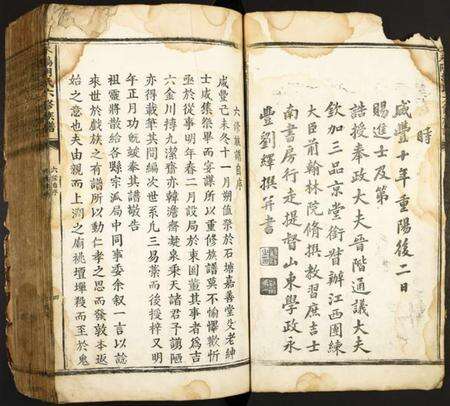 時
咸豐十年重陽後二日
賜進士及第
誥授奉政大夫晉階通議大夫
欽加三品京堂銜督辦江西團練
大臣前翰林院修撰教習庶吉士
南書房行走提督山東學政永
豐劉繹撰并書
六修族譜自序
咸豐己未冬十一月朔值祭於石塘嘉善堂父老紳
士咸集祭畢而妥謀所以重修族譜莫不愉懌歡忻
亟於從事明年春二月設局於東園董其事者為吉
六金川摶九潔齋亦韓澹齋凝泉乘天諸君予謭陋
亦得載筆共間編次世系凡三易藁而後授梓又明
年正月功竣奉其譜敬告
祖靈將散給各縣宗派局中同事委余叙一言以諗
來世於戲族之有譜所以動仁孝之思而發敦本返
始之意也夫由親而上溯之廟祧壇墠殺而至於鬼
六修族譜